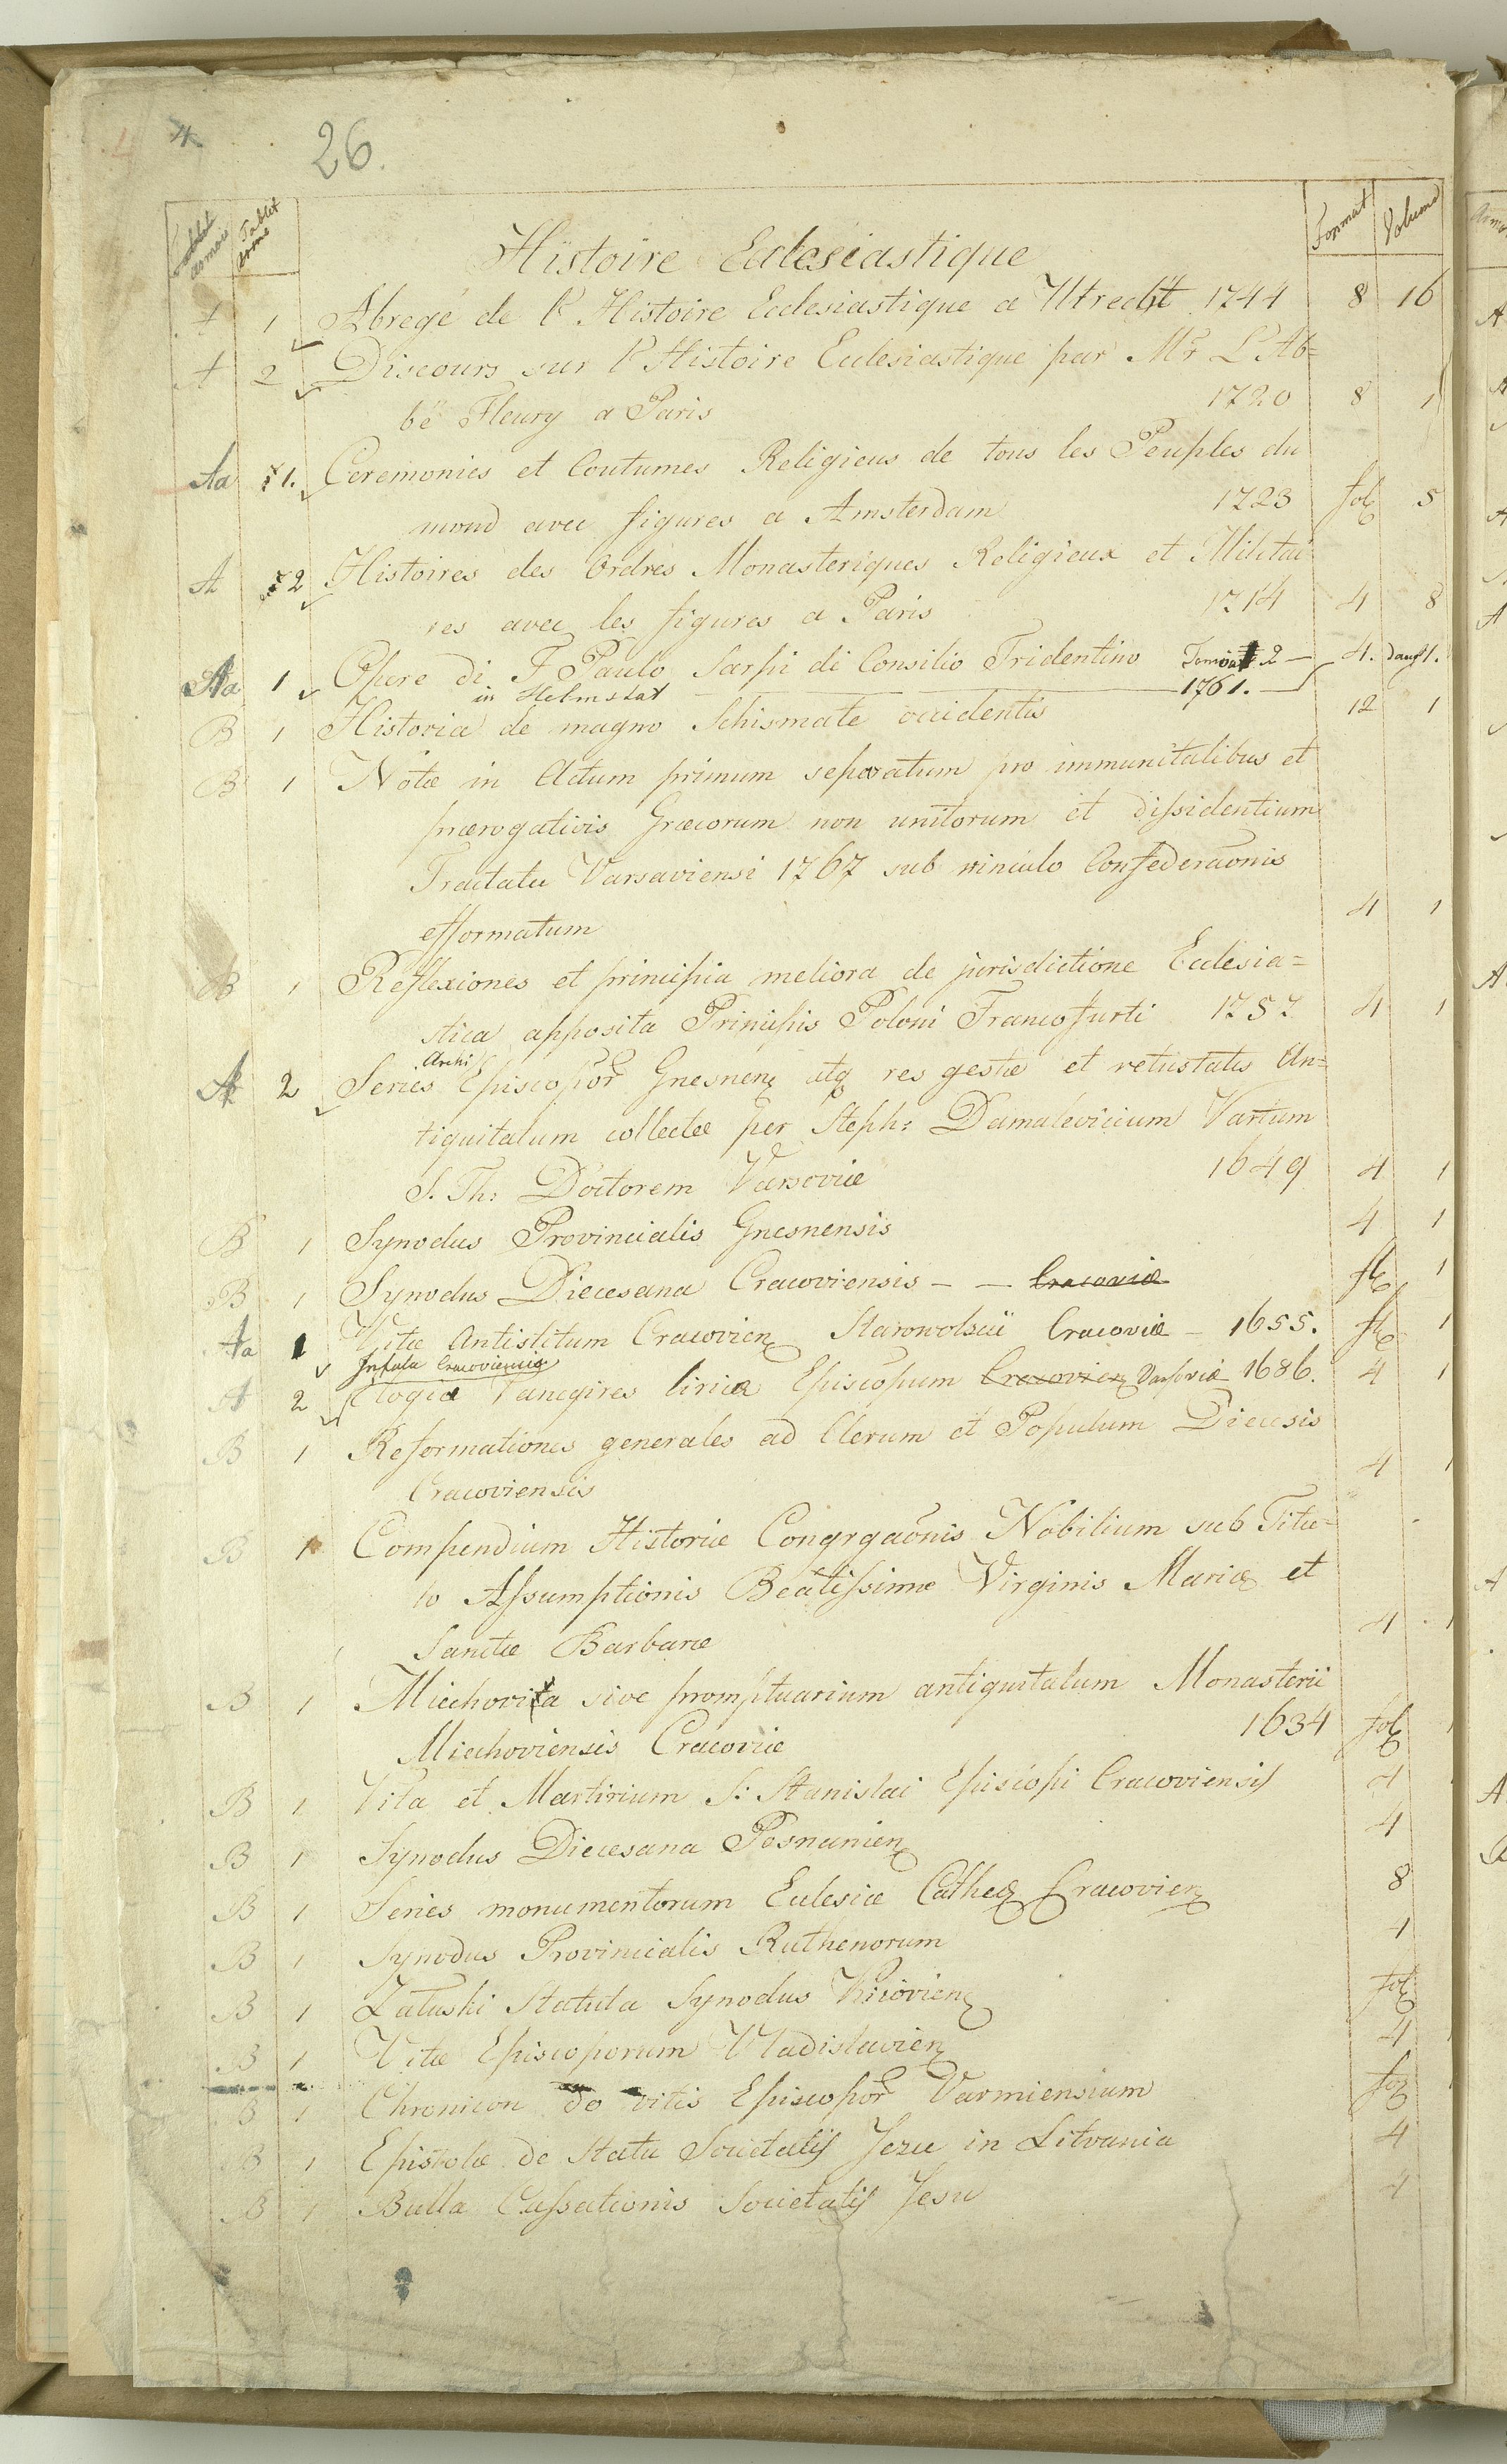 4 4. 26.
armoir Tablet Format Volume
Histoire Eclesiastique
A 1 Abregé de l' Histoire Ecclesiastique a Utrecht 1744 8 16
A 2 Discours sur l' Histoire Eclesiastique par Mr L'Ab=
bé Fleury a Paris 1720 8 1
Aa 1. Ceremonies et Coutumes Religieus de tous les Peuples du
mond avec figures a Amsterdam 1723 fol 5
A 2 Histoires des Ordres Monasteriques Religieux et Militai
res avec les figures a Paris 1714 4 8
Aa 1 Opere di F Paulo Sarpi di Consilio Tridentino 2 — 4. 1.
in Helmstat 1761.
B 1 Historia de magno Schismate occidentis 12 1
B 1 Notæ in Actum primum separatum pro immunitatibus et
prærogativis Græcorum non unitorum et dissidentium
Tractatu Varsaviensi 1767 sub vinculo Confederaonis
efformatum 4 1
B 1 Reflexiones et principia meliora de jurisdictione Eclesia=
stica apposita Principis Poloni Francofurti 1757 4 1
Archi
A 2 Series Episcopor Gnesnen atq res gestæ et vetustatis An=
tiquitatum collectæ per Steph: Damalevicium Vartum
S. Th: Doctorem Varsoviæ 1649 4 1
B 1 Synodus Provincialis Gnesnensis 4 1
B 1 Synodus Diecesana Cracoviensis — — Cracoviæ fol 1
Aa 1 Vitæ Antistitum Cracovien Starowolscii Cracoviæ — 1655. fol 1
Infula Cracoviensis
A 2 Elogia Panegires lirica Episcopum Cracovien Varsoviæ 1686. 4 1
B 1 Reformationes generales ad Clerum et Populum Diecesis
Cracoviensis 4 1
B 1 Compendium Historiæ Congrgaonis Nobilium sub Titu=
lo Assumptionis Beatissimæ Virginis Mariæ et
Sanctæ Barbaræ 4 1
B 1 Miechovita sive promptuarium antiquitatum Monasterii
Miechoviensis Cracoviæ 1634 fol 1
B 1 Vita et Martirium S: Stanislai Episcopi Cracoviensis 4
B 1 Synodus Diecesana Posnanien 4
B 1 Series monumentorum Eclesiæ Cathed Cracovien 8
B 1 Synodus Provincialis Ruthenorum 4
B 1 Załuski Statuta Synodus Kiiovien fol
B 1 Vitæ Episcoporum Vladislavien 4
B 1 Chronicon de vitis Episcopor Varmiensium fol
B 1 Epistolæ de Statu Societatis Jezu in Litvania 4
B 1 Bulla Cassationis Societatis Jesu 4